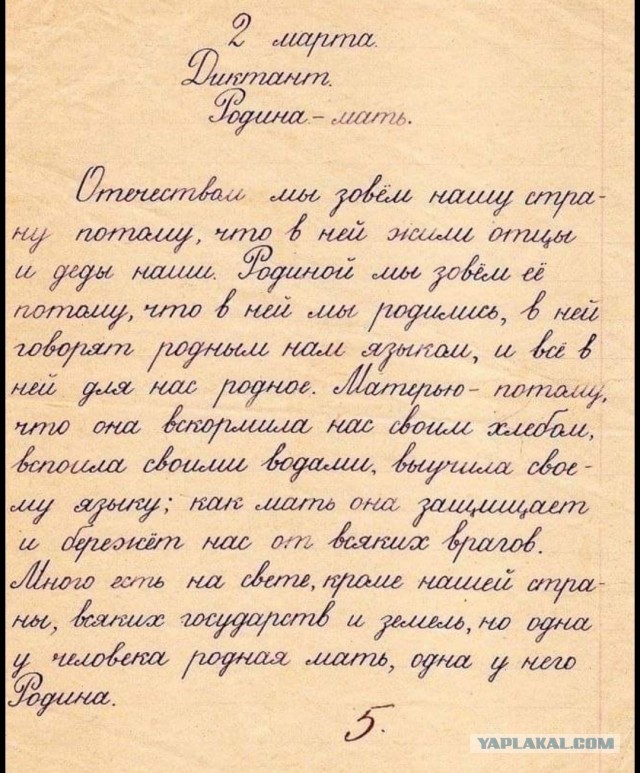 2 марта.
Диктант.
Родина - мать.
Отечеством мы зовём нашу стра-
ну потому, что в ней жили отцы
и деды наши. Родиной мы зовём её
потому, что в ней мы родились, в ней
говорят родным нам языком, и всё в
ней для нас родное. Матерью - потому,
что она вскормила нас своим хлебом,
вспоила своими водами, выучила свое-
му языку; как мать она защищает
и бережёт нас от всяких врагов.
Много есть на свете, кроме нашей стра-
ны, всяких государств и земель, но одна
у человека родная мать, одна у него
Родина.
5.
YAPLAKAL.COM